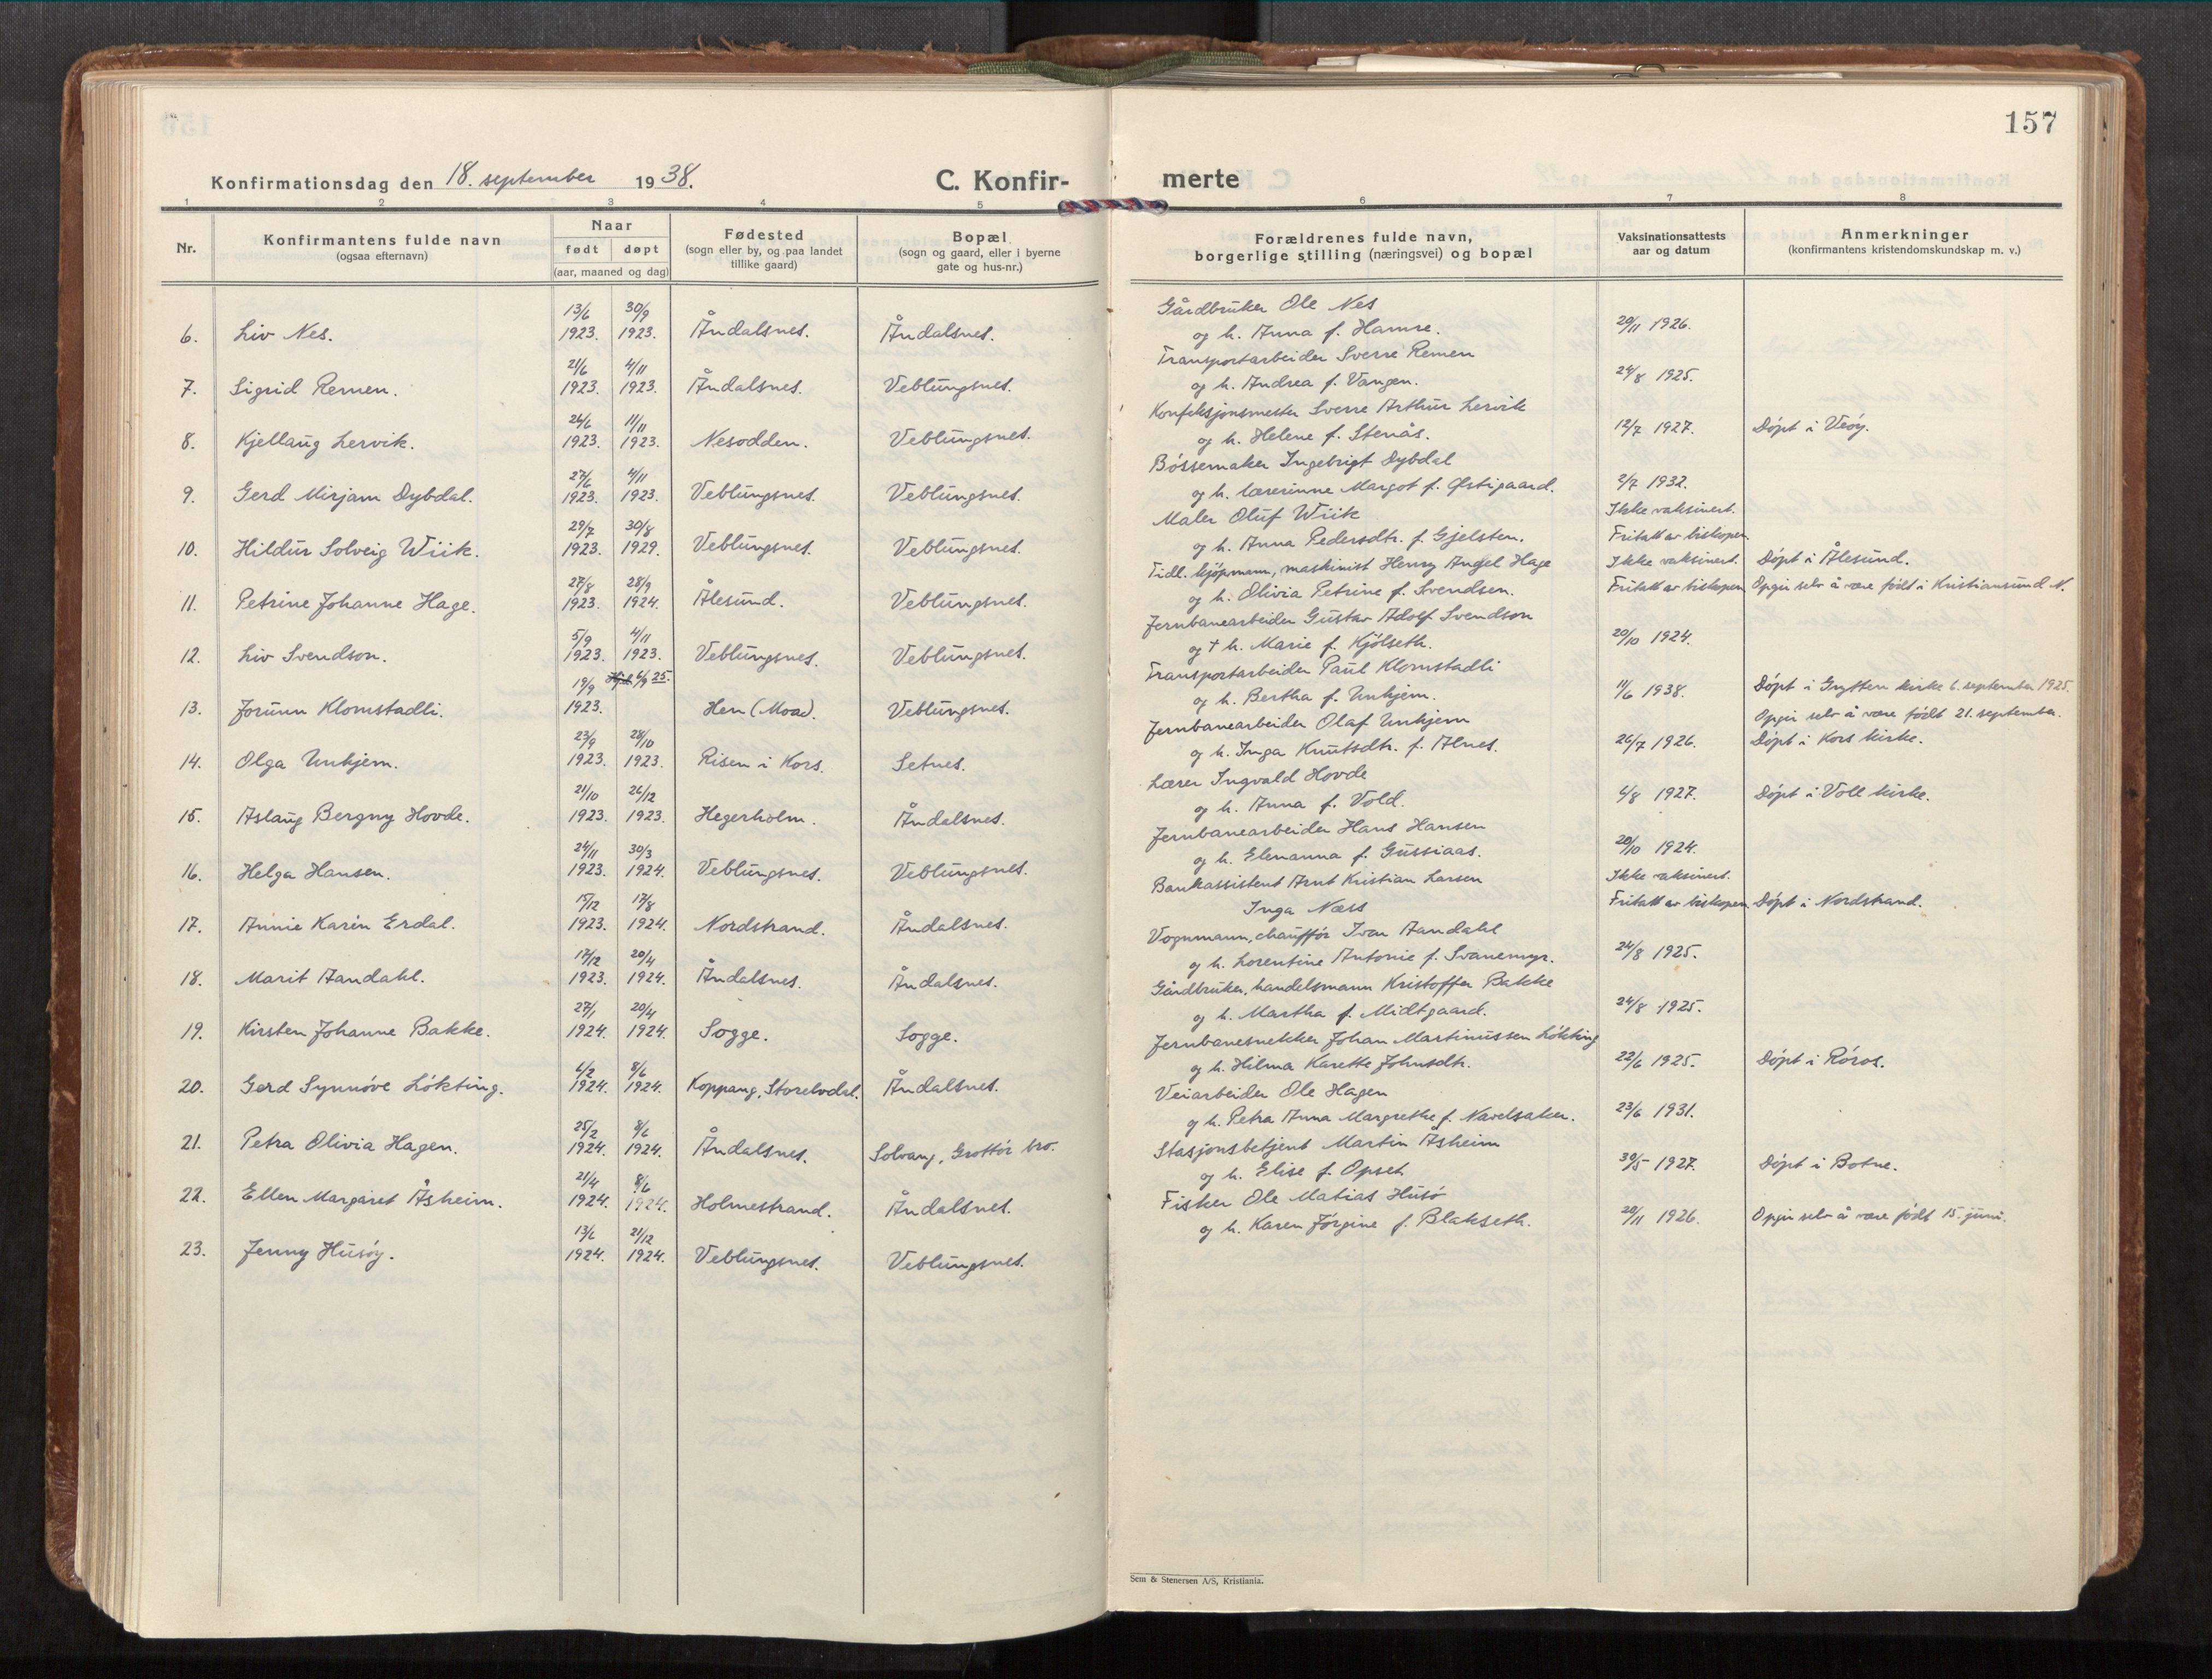 157
Konfirmationsdag den 18. september 1938.
C. Konfir-
merte
1 2 3 4 5 6 7 8
Nr.
Konfirmantens fulde navn
(ogsaa efternavn)
Naar
født døpt
(aar, maaned og dag)
Fødested
(sogn eller by, og paa landet
tillike gaard)
Bopæl
(sogn og gaard, eller i byerne
gate og hus-nr.)
Forældrenes fulde navn,
borgerlige stilling (næringsvei) og bopæl
Vaksinationsattests
aar og datum
Anmerkninger
(konfirmantens kristendomskundskap m. v.)
13/6 30/9 Gårdbruker Ole Nes
6. Liv Nes. 1923. 1923. Åndalsnes. Åndalsnes. og h. Anna f. Hamre. 29/11 1926.
21/6 4/11 Transportarbeider Sverre Remen
7. Sigrid Remen. 1923. 1923. Åndalsnes. Veblungsnes. og h. Andrea f. Vangen. 24/8 1925.
24/6 11/11 Konfeksjonsmester Sverre Arthur Lervik
8. Kjellaug Lervik. 1923. 1923. Nesodden. Veblungsnes. og h. Helene f. Stenås. 12/7 1927. Döpt i Veöy.
27/6 4/11 Bössemaker Ingebrigt Dybdal
9. Gerd Mirjam Dybdal. 1923. 1923. Veblungsnes. Veblungsnes. og h. lærerinne Margot f. Østigaard. 2/7 1932.
29/7 30/8 Maler Oluf Wiik Ikke vaksinert.
10. Hildur Solveig Wiik. 1923. 1929. Veblungsnes. Veblungsnes. og h. Anna Pedersdtr. f. Gjelsten. Fritatt av biskopen.
27/8 28/9 Tidl. kjöpmann, maskinist Henry Angel Hage Ikke vaksinert. Döpt i Ålesund.
11. Petrine Johanne Hage. 1923. 1924. Ålesund. Veblungsnes. og h. Olivia Petrine f. Svendsen. Fritatt av biskopen. Opgir selv å være födt i Kristiansund N.
5/9 4/11 Jernbanearbeider Gustav Adolf Svendson
12. Liv Svendson. 1923. 1923. Veblungsnes. Veblungsnes. og † h. Marie f. Kjölseth. 20/10 1924.
19/9 6/9 25. Transportarbeider Paul Klomstadli
13. Jorunn Klomstadli. 1923. Hen (Moa). Veblungsnes. og h. Bertha f. Unhjem. 11/6 1938. Döpt i Grytten kirke 6. september 1925.
Opgir selv å være födt 21. september.
23/9 28/10 Jernbanearbeider Olaf Unhjem
14. Olga Unhjem. 1923. 1923. Risen i Kors. Setnes. og h. Inga Knutsdtr. f. Alnes. 26/7 1926. Döpt i Kors kirke.
21/10 26/12 Lærer Ingvald Hovde
15. Aslaug Bergny Hovde. 1923. 1923. Hegerholm. Åndalsnes. og h. Anna f. Vold. 6/8 1927. Döpt i Voll kirke.
24/11 30/3 Jernbanearbeider Hans Hansen
16. Helga Hansen. 1923. 1924. Veblungsnes. Veblungsnes. og h. Elenanna f. Gussiaas. 20/10 1924.
15/12 17/8 Bankassistent Arnt Kristian Larsen Ikke vaksinert.
17. Annie Karin Erdal. 1923. 1924. Nordstrand. Åndalsnes. Inga Næss Fritatt av biskopen. Döpt i Nordstrand.
17/12 20/4 Vognmann, chaufför Ivar Aandahl
18. Marit Aandahl. 1923. 1924. Åndalsnes. Åndalsnes. og h. Lorentine Antonie f. Svanemyr. 24/8 1925.
27/1 20/4 Gårdbruker, handelsmann Kristoffer Bakke
19. Kirsten Johanne Bakke. 1924. 1924. Sogge. Sogge. og h. Martha f. Midtgaard. 24/8 1925.
6/2 8/6 Jernbanesnekker Johan Martinussen Lökting
20. Gerd Synnöve Lökting. 1924. 1924. Koppang, Storelvdal. Åndalsnes. og h. Hilma Karette Johnsdtr. 22/6 1925. Döpt i Röros.
25/2 8/6 Veiarbeider Ole Hagen
21. Petra Olivia Hagen. 1924. 1924. Åndalsnes. Solvang, Grottör bro. og h. Petra Anna Margrethe f. Navelsaker. 23/6 1931.
21/4 8/6 Stasjonsbetjent Martin Åsheim
22. Ellen Margaret Åsheim. 1924. 1924. Holmestrand. Åndalsnes. og h. Elise f. Opset 30/5 1927. Döpt i Botne.
13/6 21/12 Fisker Ole Matias Husö
23. Jenny Husöy. 1924. 1924. Veblungsnes. Veblungsnes. og h. Karen Jörgine f. Blakseth. 20/11 1926. Opgir selv å være födt 15. juni.
Sem & Stenersen A/S, Kristiania.